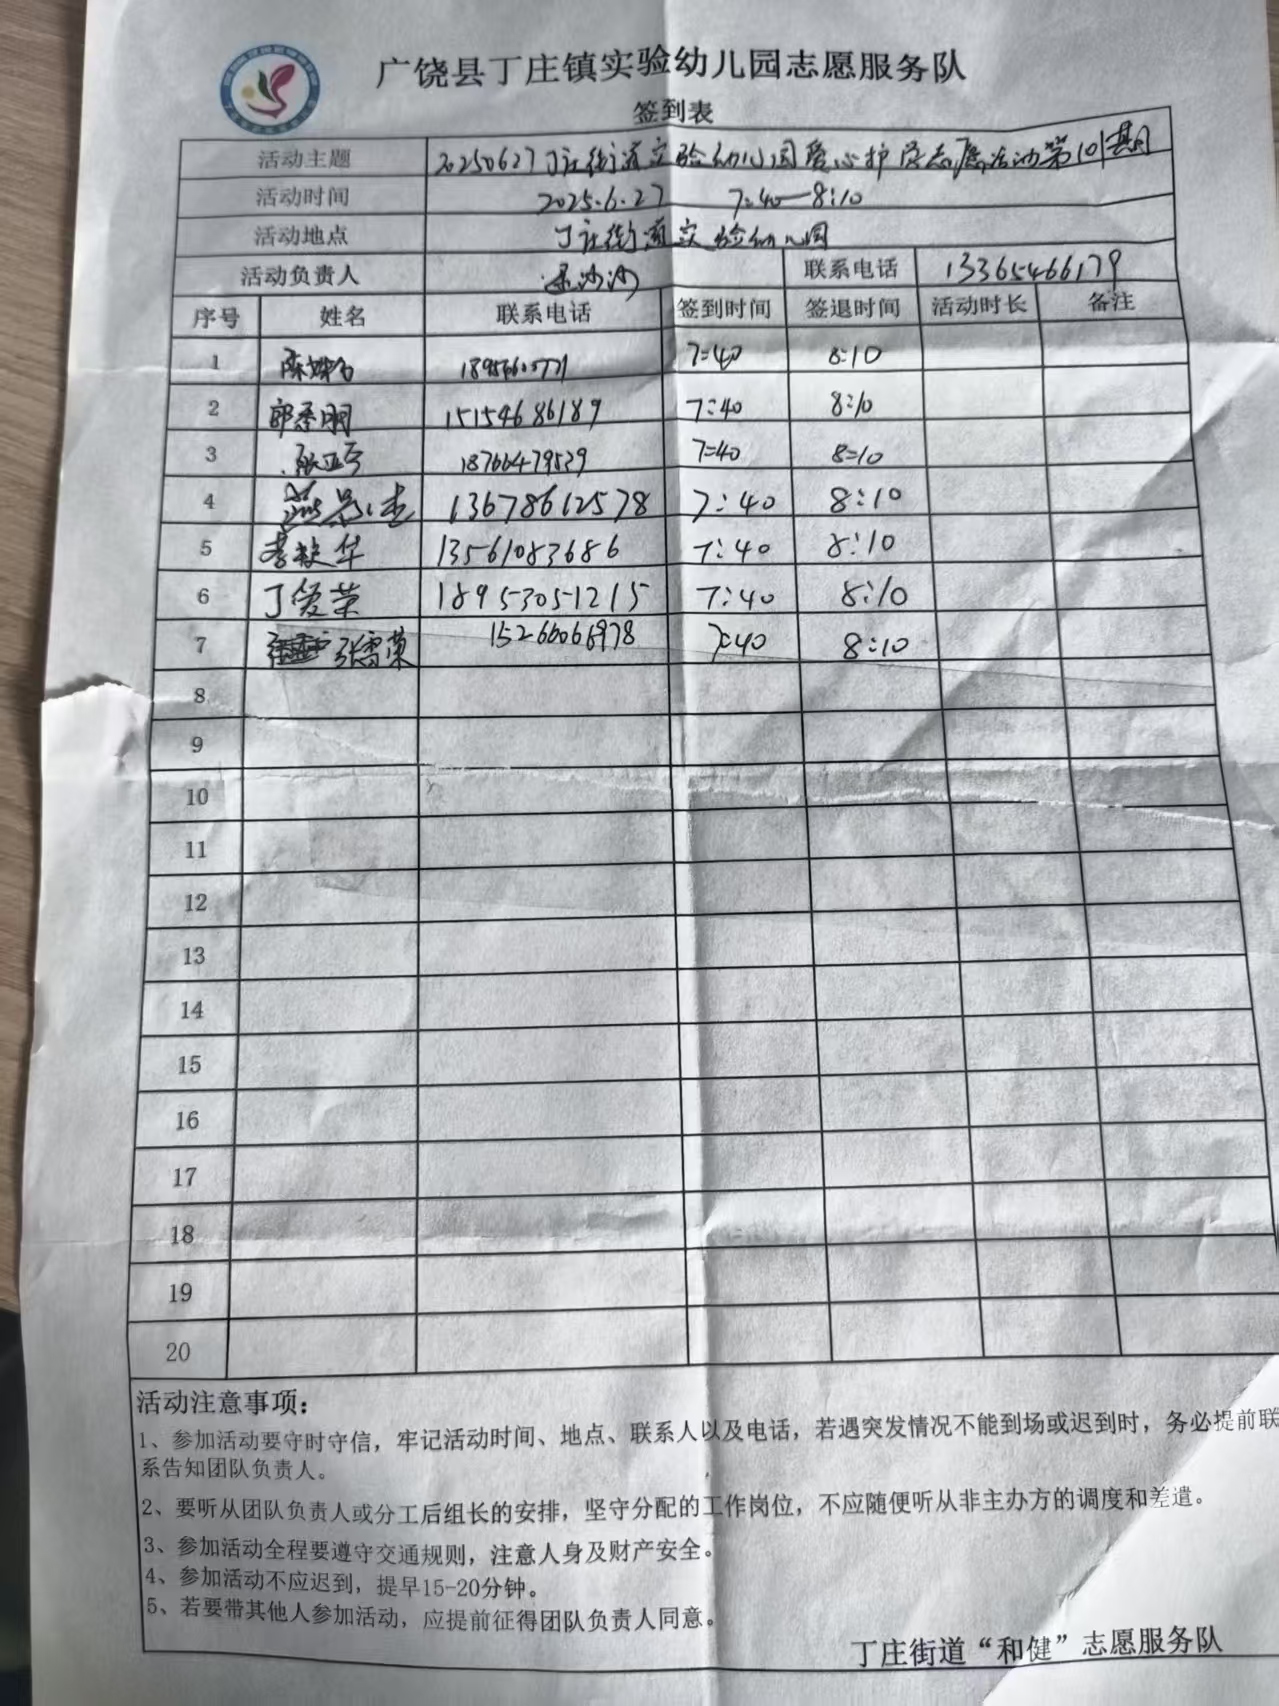 广饶县丁庄镇实验幼儿园志愿服务队
签到表
活动主题 20250627丁庄街道实验幼儿园爱心护学志愿活动第101期
活动时间 2025.6.27 7:40—8:10
活动地点 丁庄街道实验幼儿园
活动负责人 沙沙 联系电话 13365466179
序号 姓名 联系电话 签到时间 签退时间 活动时长 备注
1 7:40 8:10
2 15154686189 7:40 8:10
3 张亚宁 18766479529 7:40 8:10
4 燕景杰 13678612578 7:40 8:10
5 李校华 13561083686 7:40 8:10
6 丁爱荣 18953051215 7:40 8:10
7 张雷荣 15266066978 7:40 8:10
8
9
10
11
12
13
14
15
16
17
18
19
20
活动注意事项：
1、参加活动要守时守信，牢记活动时间、地点、联系人以及电话，若遇突发情况不能到场或迟到时，务必提前联
系告知团队负责人。
2、要听从团队负责人或分工后组长的安排，坚守分配的工作岗位，不应随便听从非主办方的调度和差遣。
3、参加活动全程要遵守交通规则，注意人身及财产安全。
4、参加活动不应迟到，提早15-20分钟。
5、若要带其他人参加活动，应提前征得团队负责人同意。
丁庄街道“和健”志愿服务队